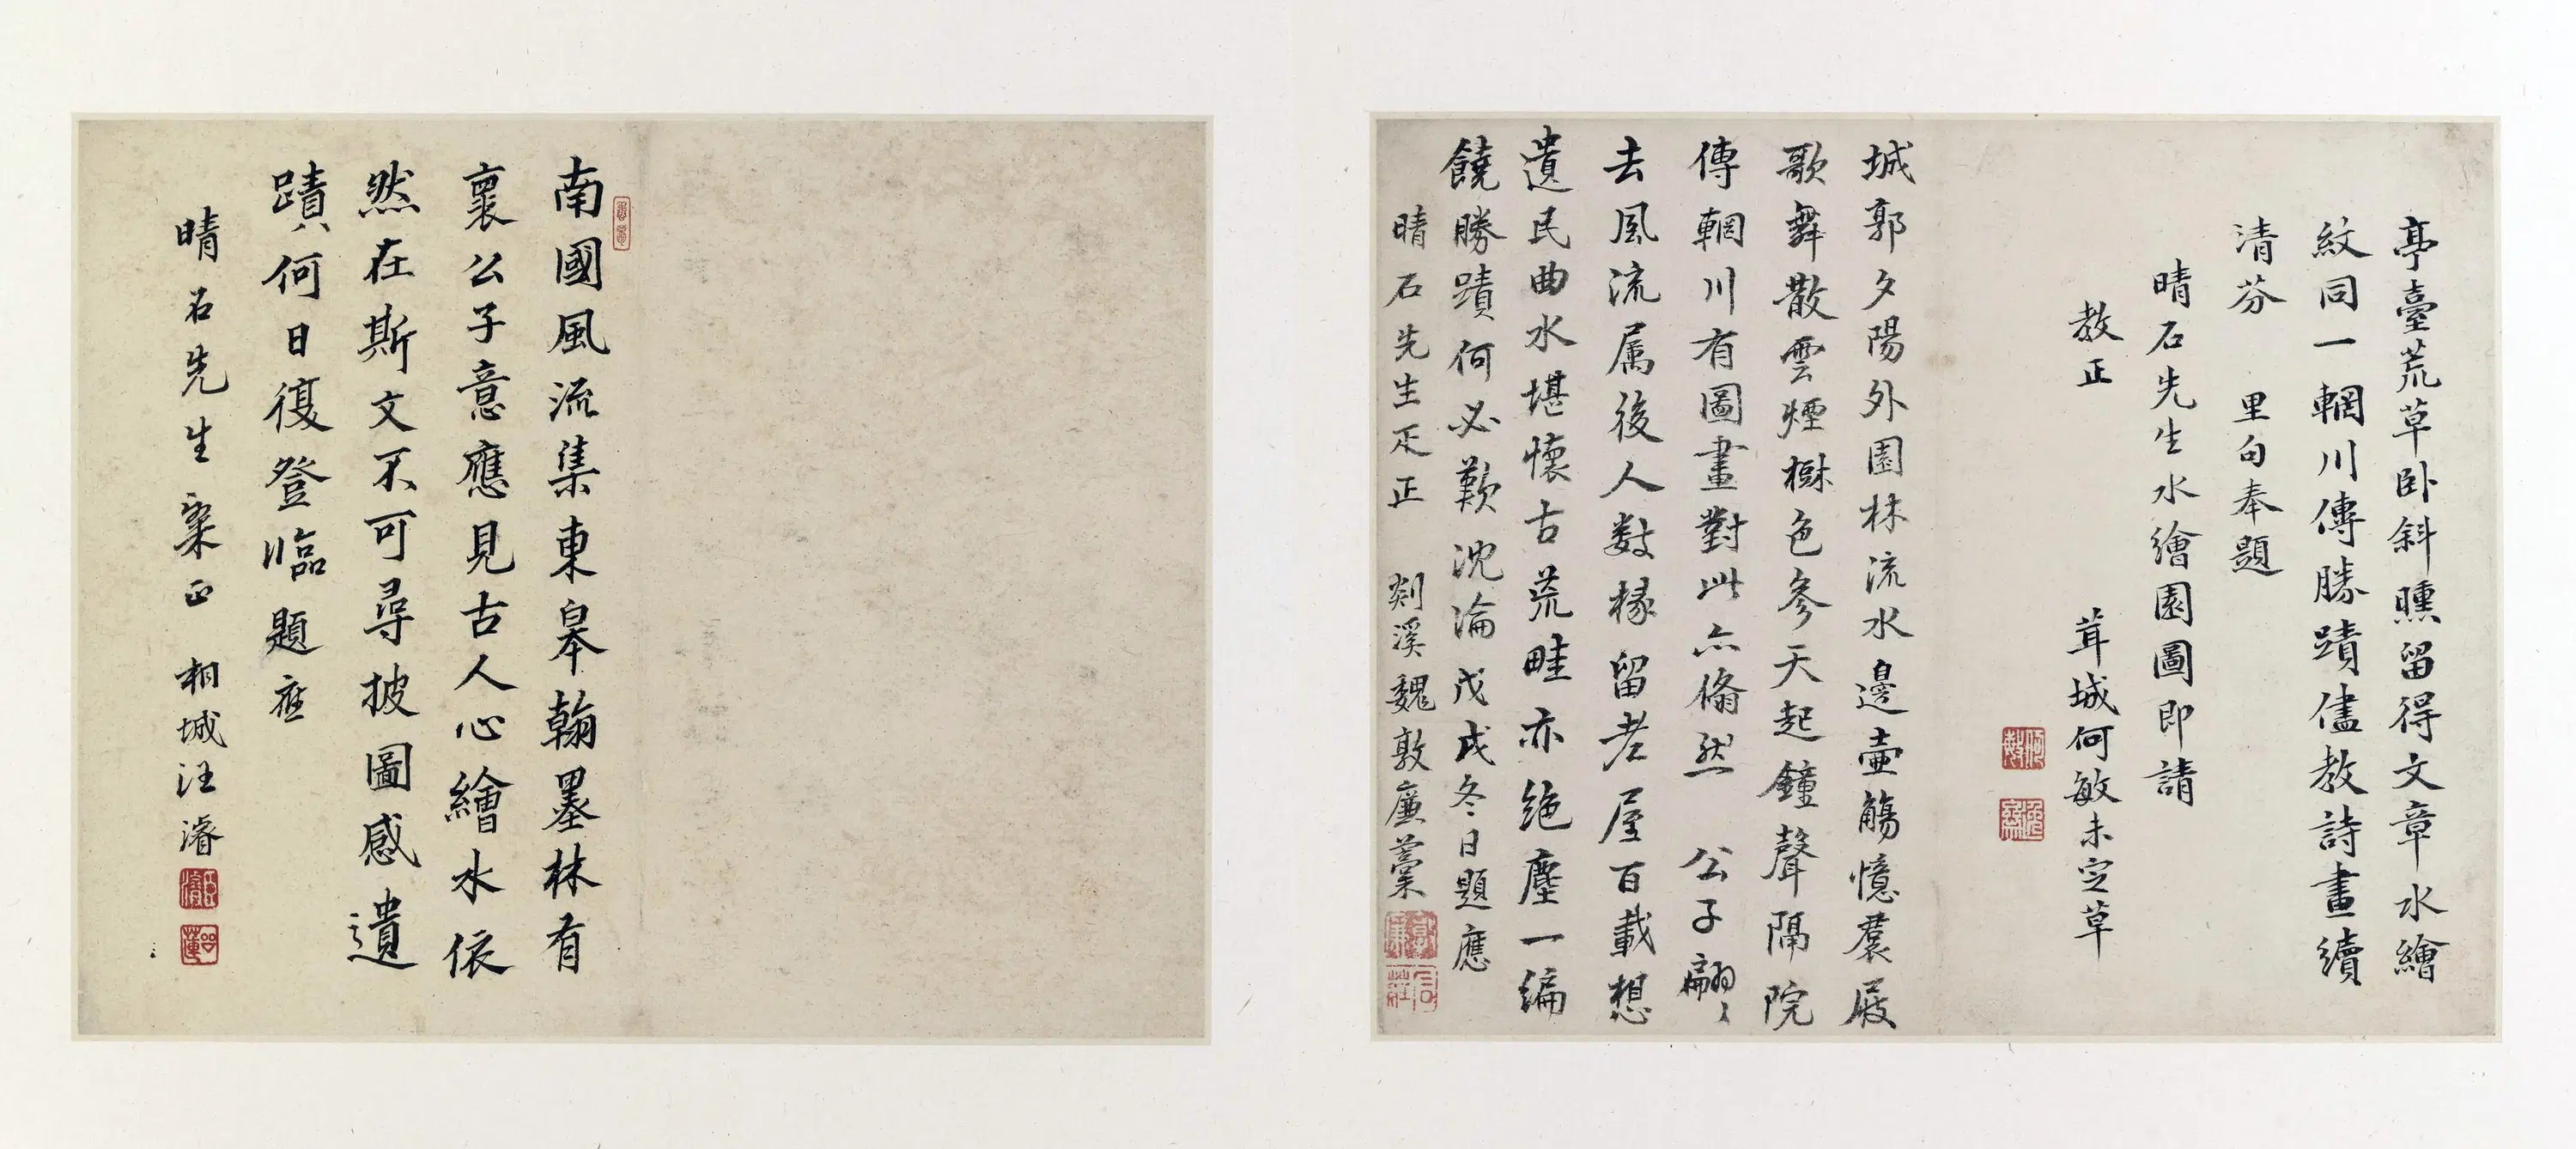 亭臺荒草卧斜曛留得文章水繪
紋同一輞川傳勝蹟儘教詩畫續
清芬　里句奉題
晴石先生水繪園圖即請
教正　茸城何敏未定草
城郭夕陽外園林流水邊壷觴憶羣屐
歌舞散雲煙樹色參天起鐘聲隔院
傳輞川有圖畫對此亦翛然　公子翩〻
去風流属後人數椽留老屋百載想
遺民曲水堪懷古荒畦亦絶塵一編
饒勝蹟何必歎沈淪戊戌冬日題應
晴石先生疋正　剡溪魏敦廉藳
南國風流集東皋翰墨林有
襄公子意應見古人心繪水依
然在斯文不可尋披圖感遺
蹟何日復登臨題應
晴石先生粲正　相城汪濬